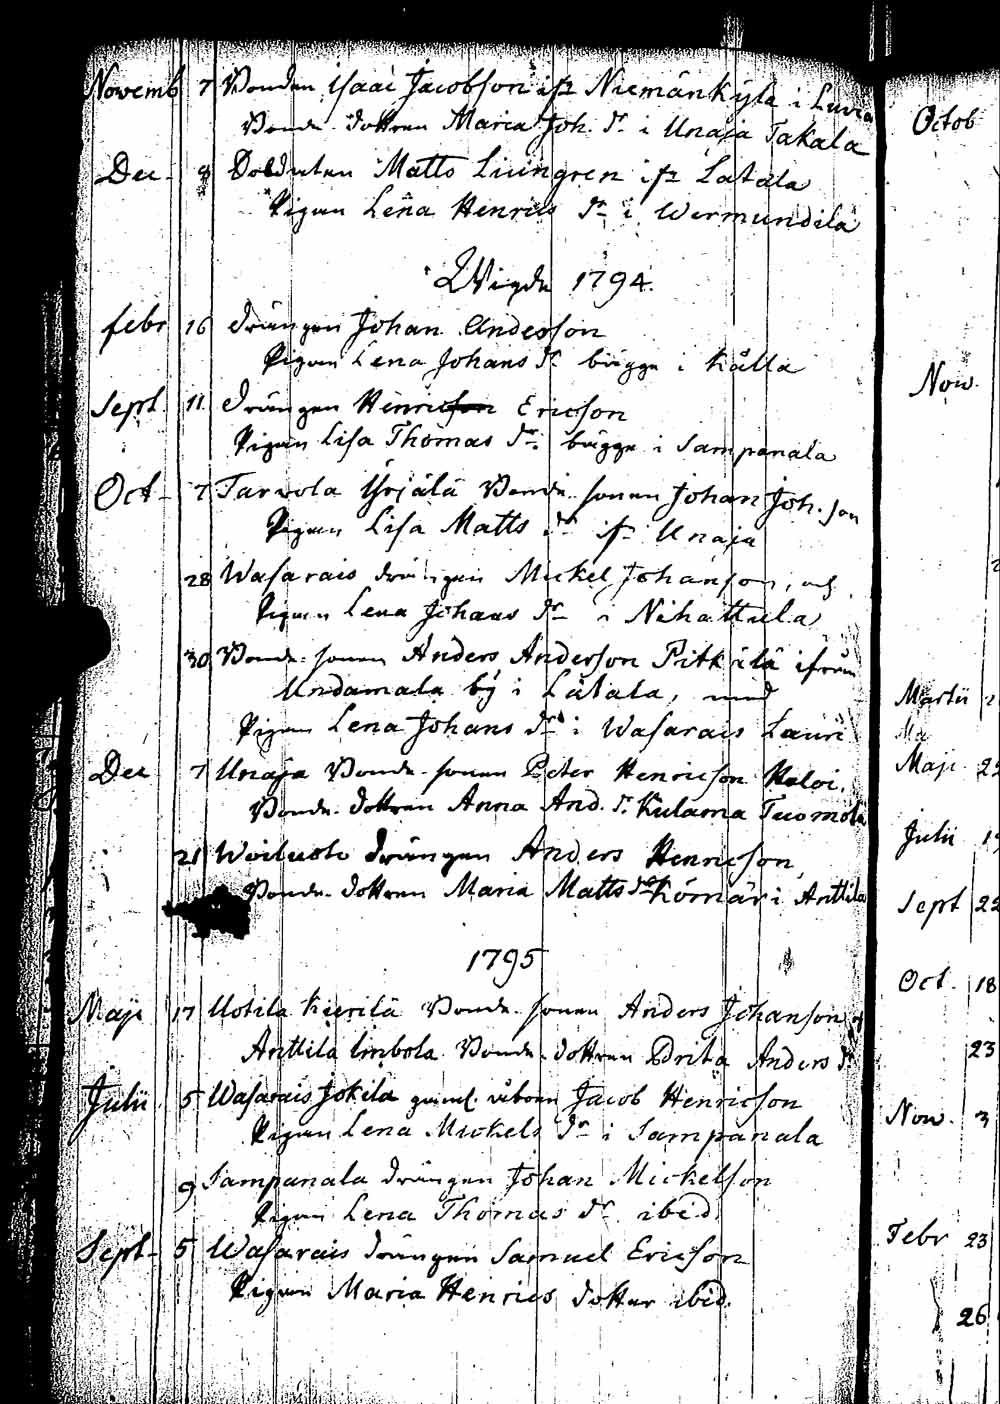 Novemb 7 Bonden Isaac Jacobsson ifr Niemänkylä i Luvia
Bonde dottren Maria Joh. Dr i Unaja Takala
Dec 8 Soldaten Matts Liungren ifr Latala
Pigan Lena Henrics Dr i Wermundila
Wigde 1794.
febr 16 drängen Johan Andersson
Pigan Lena Johans Dr bägge i Källa
Sept 11 drängen Henricson Ericsson
Pigan Lisa Thomas Dr. bägge i Sampanala
Oct 7 Tarvola Yrjälä Bonde sonen Johan Joh.son
Pigan Lisa Matts Dr ifr Unaja
28 Wasarais drängen Mickel Johanson, och
Pigan Lena Johans Dr i Nihattula
30 Bonde sonen Anders Anderson Pitkälä ifrån
Undamala bÿ i Lätala, med
Pigan Lena Johans Dr i Wasarais Lauri
Dec 7 Unaja Bonde sonen Peter Henricson Heloi.
Bonde dottren Anna And. Dr Kulama Tuomola
21 Woiluoto drängen Anders Henricson,
Bonde dottren Maria Matts Dr Kömäri Anttila
1795
Maji 17 Uotila Kierilä Bonde sonen Anders Johanson
Anttila Bonde dottren Brita Anders Dr
Julii 5 Wasarais Jokela Jacob Henricson
Pigan Lena Mickels Dr i Sampanala
9 Sampanala drängen Johan Mickelson
Pigan Lena Thomas Dr ibid.
Sept 5 Wasarais drängen Samuel Ericson
Pigan Maria Henrics dotter ibid.
Octob
Nov.
Martii
Ma
Maji 22
Julii
Sept 22
Oct. 18
23
Nov. 3
Febr 23
26